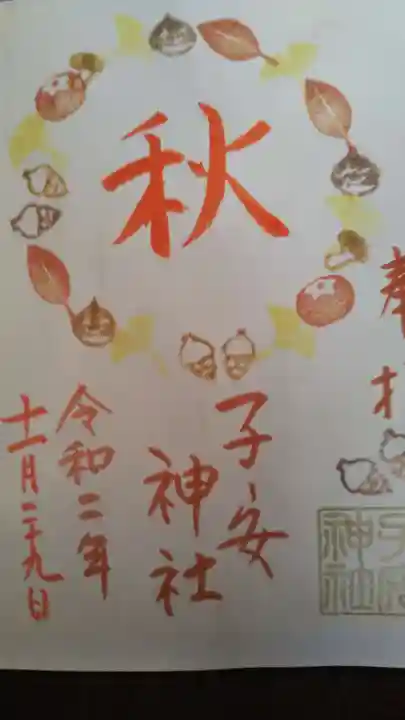 奉拝
秋
子安
神社
令和二年
十一月二十九日
子安
神社